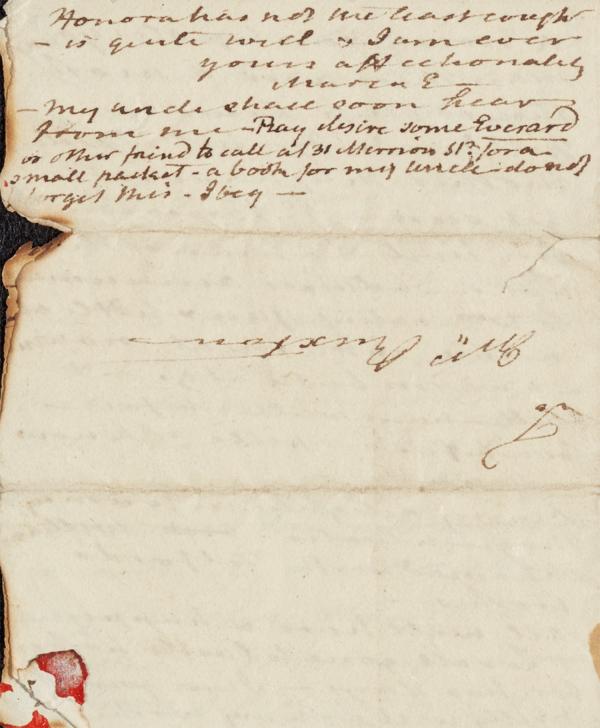 Honora has not the least cough
- is quite well & I am ever
yours affectionately
Maria E—
- My uncle shall soon hear
from me - Pray desire some Everard
or other friend to call at 31 Merrion St. for a
small packet - a book for my uncle - do not
forget this - I beg —
Mrs Ruxton